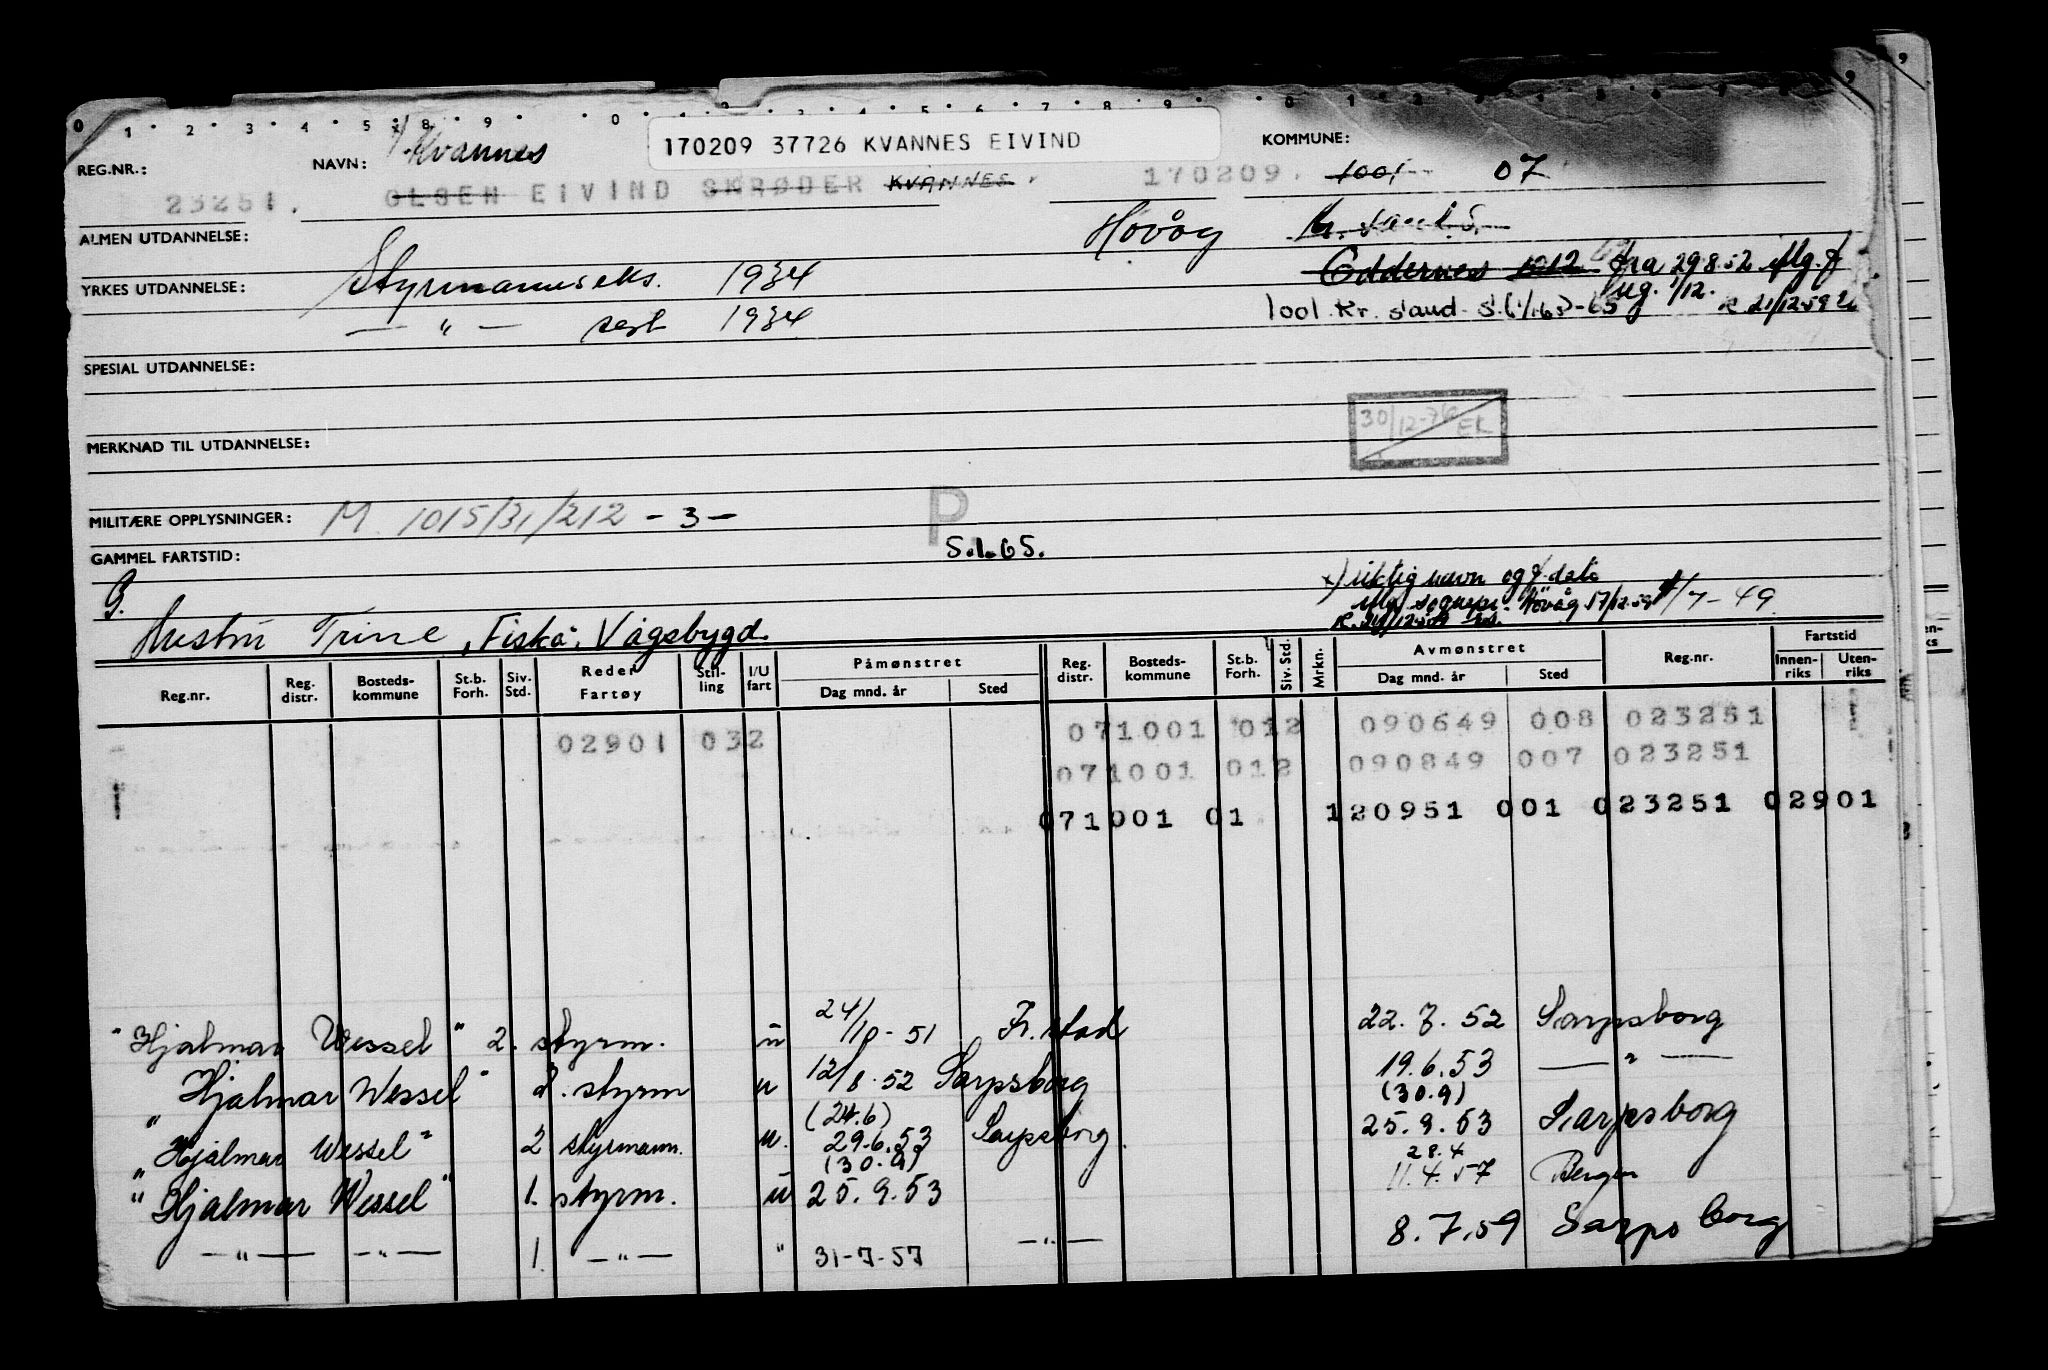 0 1 2 3 4 5 8 9 0 1 2 3 4 5 6 7 8 9 0 1 2 9 9
REG.NR.: NAVN: Kvannes 170209 37726 KVANNES EIVIND KOMMUNE:
23251. OLSEN EIVIND SKRØDER KVANNES. 170209. 1001 07
ALMEN UTDANNELSE: Høvåg Kr. sand. S.
YRKES UTDANNELSE: Styrmannseks. 1934 Oddernes 1012 fra 29.8.52 mlg.f
— " — sert 1934 1001 Kr. sand. S. (1/1.63) - 65 mg. 1/12. R 21/12.59
SPESIAL UTDANNELSE:
30/12-76 EK
MERKNAD TIL UTDANNELSE:
MILITÆRE OPPLYSNINGER: M 1015/31/212 - 3 - P
GAMMEL FARTSTID: S.1.65.
x) riktig navn og f.dato
G. sognepr. Høvåg 17/12.59 1/7-49
Hustru Trine, Fiskå, Vågsbygd.
Reg.nr. Reg. distr. Bosteds-kommune St.b. Forh. Siv. Std. Reder Fartøy Stil-ling I/U fart Påmønstret Dag mnd. år Sted Reg. distr. Bosteds-kommune St.b. Forh. Siv. Std. Mrkn. Avmønstret Dag mnd. år Sted Reg.nr. Fartstid Innen-riks Uten-riks
02901 032 071001 012 090649 008 023251
071001 012 090849 007 023251
071001 01 120951 001 023251 02901
"Hjalmar Wessel" 2. styrm. u 24/10-51 Fr.stad 22.7.52 Sarpsborg
"Hjalmar Wessel" 2. styrm u 12/8.52 Sarpsborg 19.6.53 — " —
(24.6) (30.9)
"Hjalmar Wessel" 2 styrmann. u. 29.6.53 Sarpsborg. 25.9.53 Sarpsborg
(30.9) 28.4
"Hjalmar Wessel" 1. styrm. u 25.9.53 11.4.57 Bergen
— " — — " — 1. — " — " 31-7-57 — " — 8.7.59 Sarpsborg